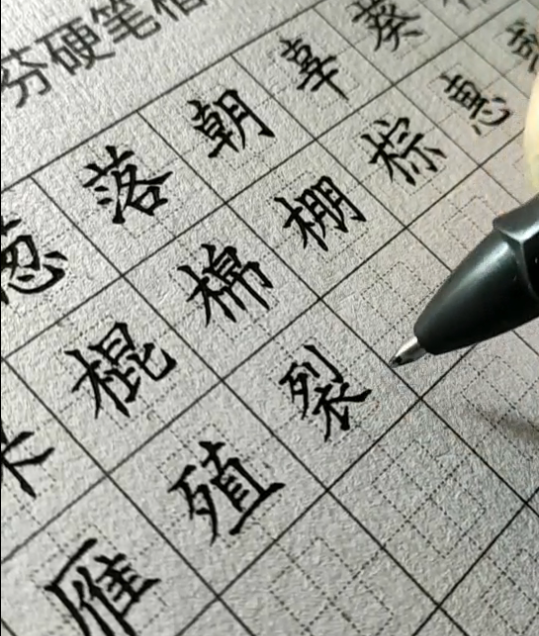 芬硬笔
葱落朝辜葵
棍棉棚棕惠
雁殖裂